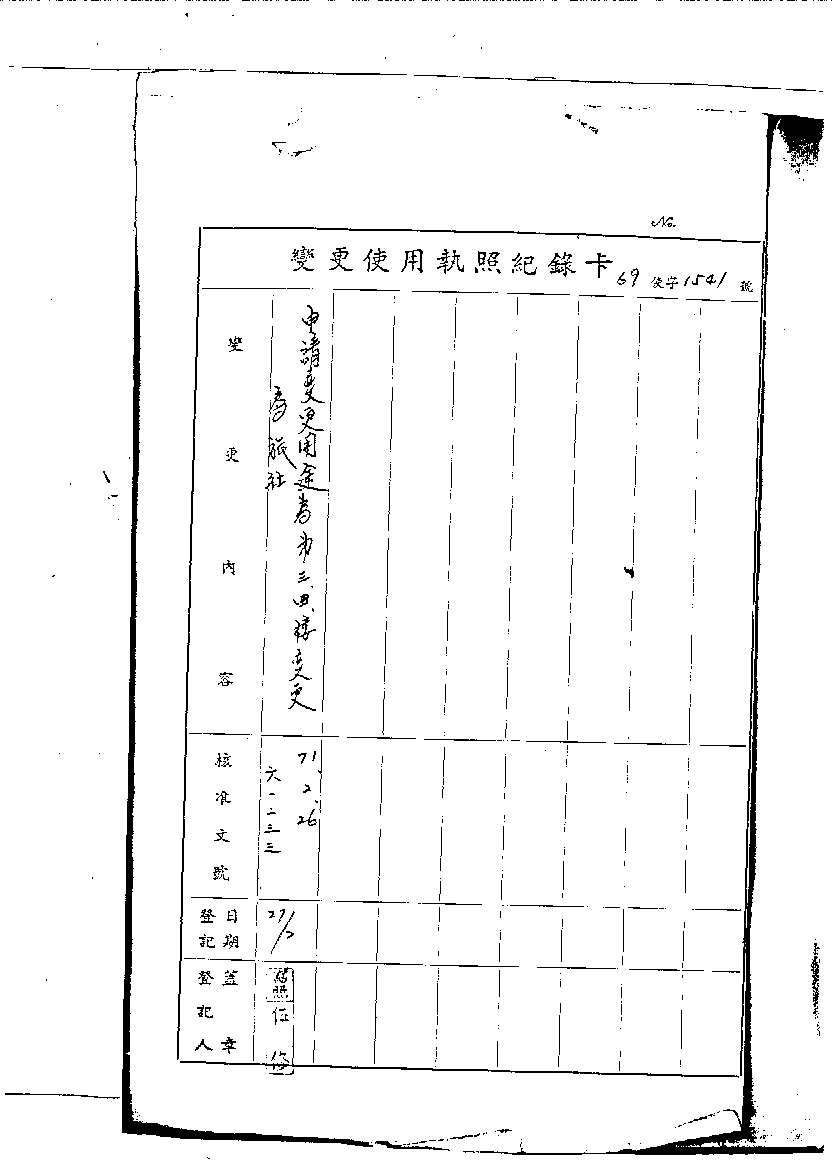 No.
變更使用執照紀錄卡
69使字1541號
變更內容
申請變更用途為第三.四.樓變更
為旅社
核准文號
71.2.26
六一二三三
登記日期
27/2
登記人蓋章